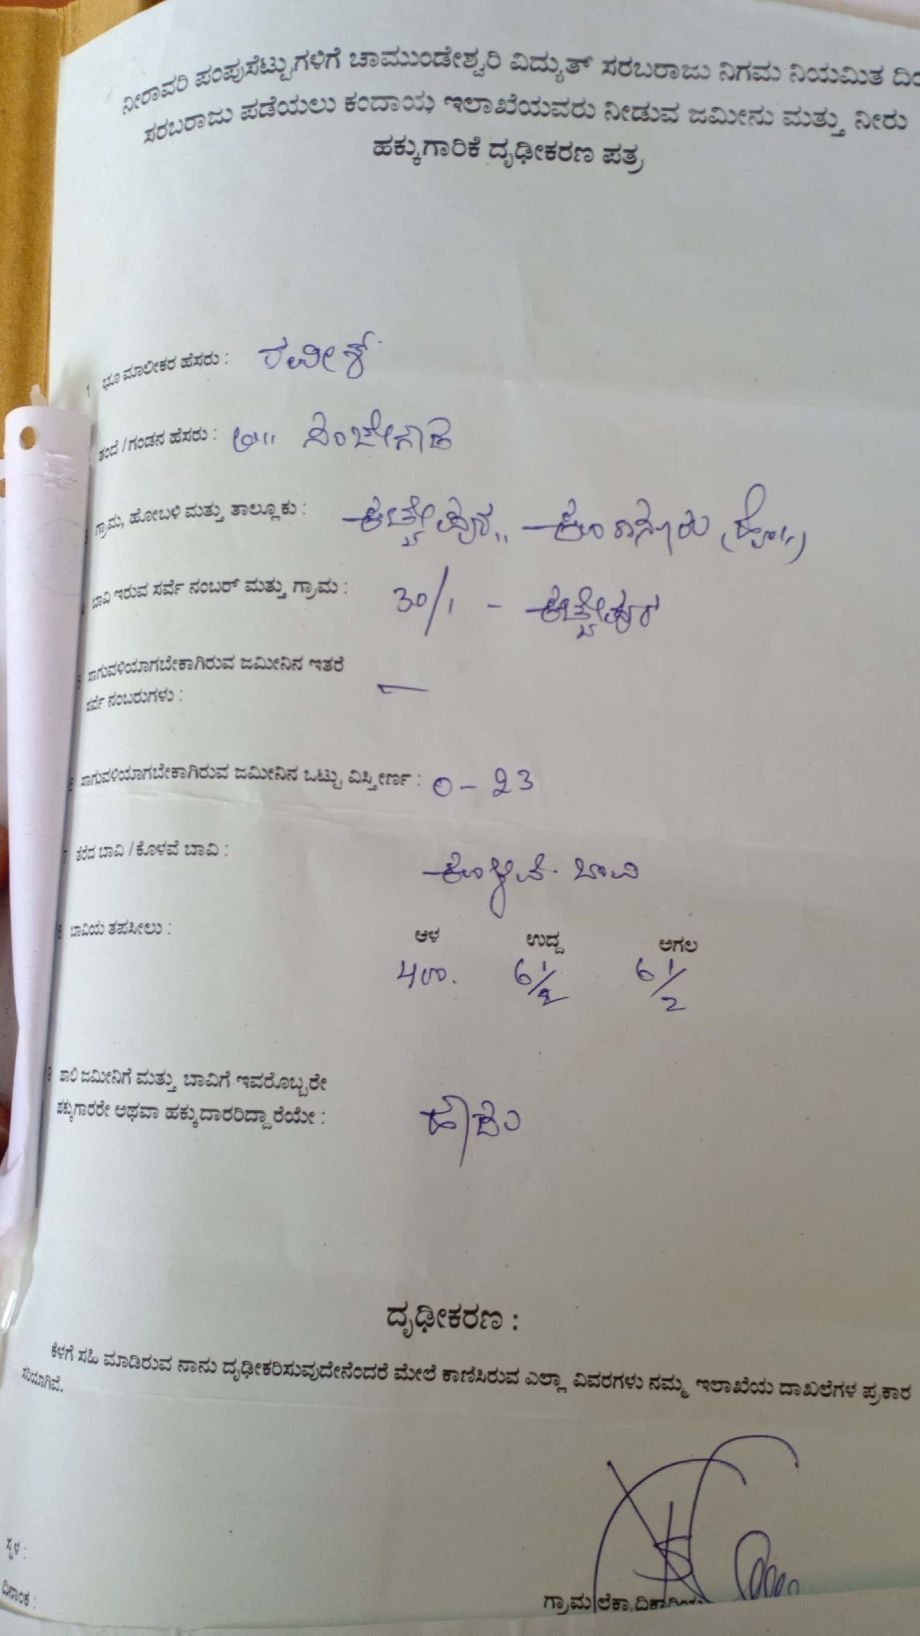 ನೀರಾವರಿ ಪಂಪುಸೆಟ್ಟುಗಳಿಗೆ ಚಾಮುಂಡೇಶ್ವರಿ ವಿದ್ಯುತ್ ಸರಬರಾಜು ನಿಗಮ ನಿಯಮಿತ
ಸರಬರಾಜು ಪಡೆಯಲು ಕಂದಾಯ ಇಲಾಖೆಯವರು ನೀಡುವ ಜಮೀನು ಮತ್ತು ನೀರು
ಹಕ್ಕುಗಾರಿಕೆ ದೃಢೀಕರಣ ಪತ್ರ
1 ಭೂ ಮಾಲೀಕರ ಹೆಸರು : ರವೀಶ್
ತಂದೆ / ಗಂಡನ ಹೆಸರು :
ಗ್ರಾಮ, ಹೋಬಳಿ ಮತ್ತು ತಾಲ್ಲೂಕು :
ಬಾವಿ ಇರುವ ಸರ್ವೆ ನಂಬರ್ ಮತ್ತು ಗ್ರಾಮ : 30/1 -
ಸಾಗುವಳಿಯಾಗಬೇಕಾಗಿರುವ ಜಮೀನಿನ ಇತರೆ
ಸರ್ವೆ ನಂಬರುಗಳು : —
6 ಸಾಗುವಳಿಯಾಗಬೇಕಾಗಿರುವ ಜಮೀನಿನ ಒಟ್ಟು ವಿಸ್ತೀರ್ಣ : 0 - 23
7 ತೆರೆದ ಬಾವಿ / ಕೊಳವೆ ಬಾವಿ : ಕೊಳವೆ ಬಾವಿ
8 ಬಾವಿಯ ತಪಸೀಲು : ಆಳ ಉದ್ದ ಅಗಲ
400. 6 1/2 6 1/2
9 ಖಾಲಿ ಜಮೀನಿಗೆ ಮತ್ತು ಬಾವಿಗೆ ಇವರೊಬ್ಬರೇ
ಹಕ್ಕುಗಾರರೇ ಅಥವಾ ಹಕ್ಕುದಾರರಿದ್ದಾರೆಯೇ : ಹೌದು
ದೃಢೀಕರಣ :
ಕೆಳಗೆ ಸಹಿ ಮಾಡಿರುವ ನಾನು ದೃಢೀಕರಿಸುವುದೇನೆಂದರೆ ಮೇಲೆ ಕಾಣಿಸಿರುವ ಎಲ್ಲಾ ವಿವರಗಳು ನಮ್ಮ ಇಲಾಖೆಯ ದಾಖಲೆಗಳ ಪ್ರಕಾರ
ಸರಿಯಾಗಿವೆ.
ಸ್ಥಳ :
ದಿನಾಂಕ :
ಗ್ರಾಮ